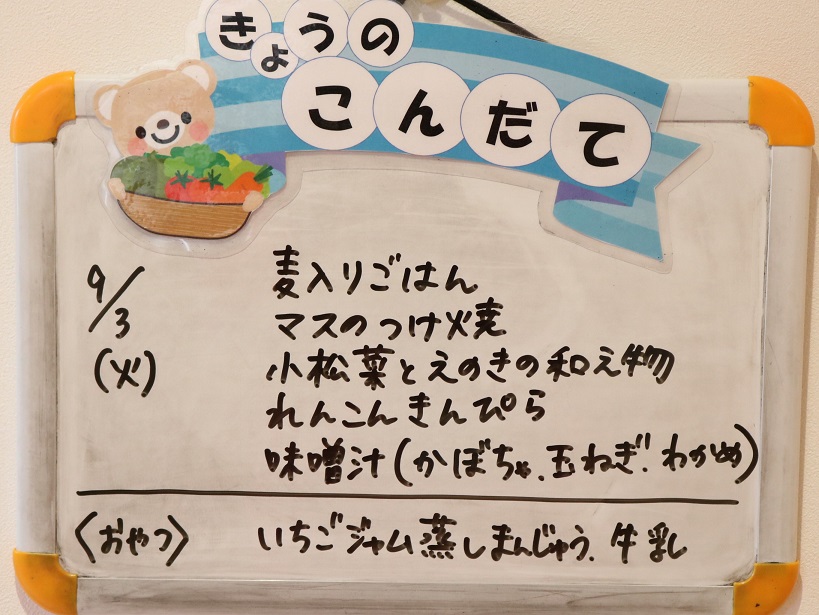 きょうの
こんだて
9/3
(火)
麦入りごはん
マスのつけ焼
小松菜とえのきの和え物
れんこんきんぴら
味噌汁(かぼちゃ、玉ねぎ、わかめ)
〈おやつ〉 いちごジャム蒸しまんじゅう、牛乳